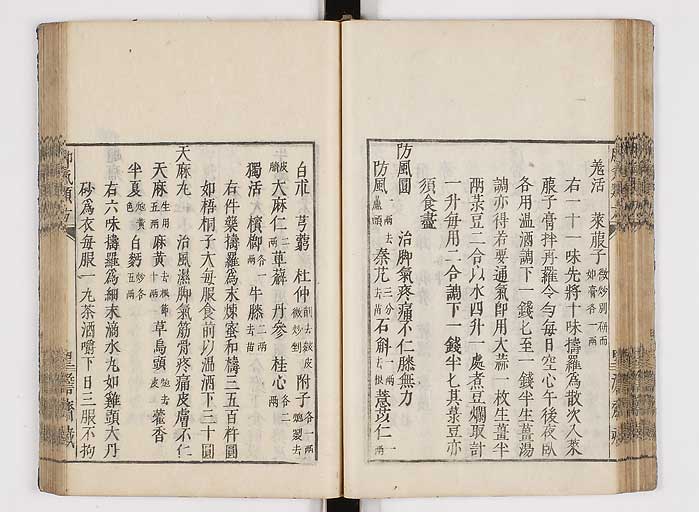 羗活　萊菔子微炒別研而如膏各一兩
右一十一味先將十味擣羅爲散次入萊
菔子膏拌再羅令勻每日空心午後夜臥
各用温酒調下一錢匕至一錢半生薑湯
調亦得若要通氣卽用大蒜一枚生薑半
兩菉豆二合以水四升一處煮豆爛取計
一升每用二合調下一錢半匕其菉豆亦
須食盡
防風圓　治脚氣疼痛不仁膝無力
防風一兩去蘆頭　秦艽三分去苗　石斛一兩去根　薏苡仁一兩
白朮　芎藭　杜仲削去皴皮微炒剉　附子各一兩炮裂去
皮臍　大麻仁二兩　萆薢　丹參　桂心各二兩
獨活　檳榔各一兩　牛膝二兩去苗
右件藥擣羅爲末煉蜜和擣三五百杵圓
如梧桐子大每服食前以温酒下三十圓
天麻丸　治風濕脚氣筋骨疼痛皮膚不仁
天麻生用五兩　麻黄去根節十兩　草烏頭炮去皮　藿香
半夏炮黄色　白麪炒各五兩
右六味擣羅爲細末滴水丸如雞頭大丹
砂爲衣每服一丸茶酒嚼下日三服不拘
脚氣類方